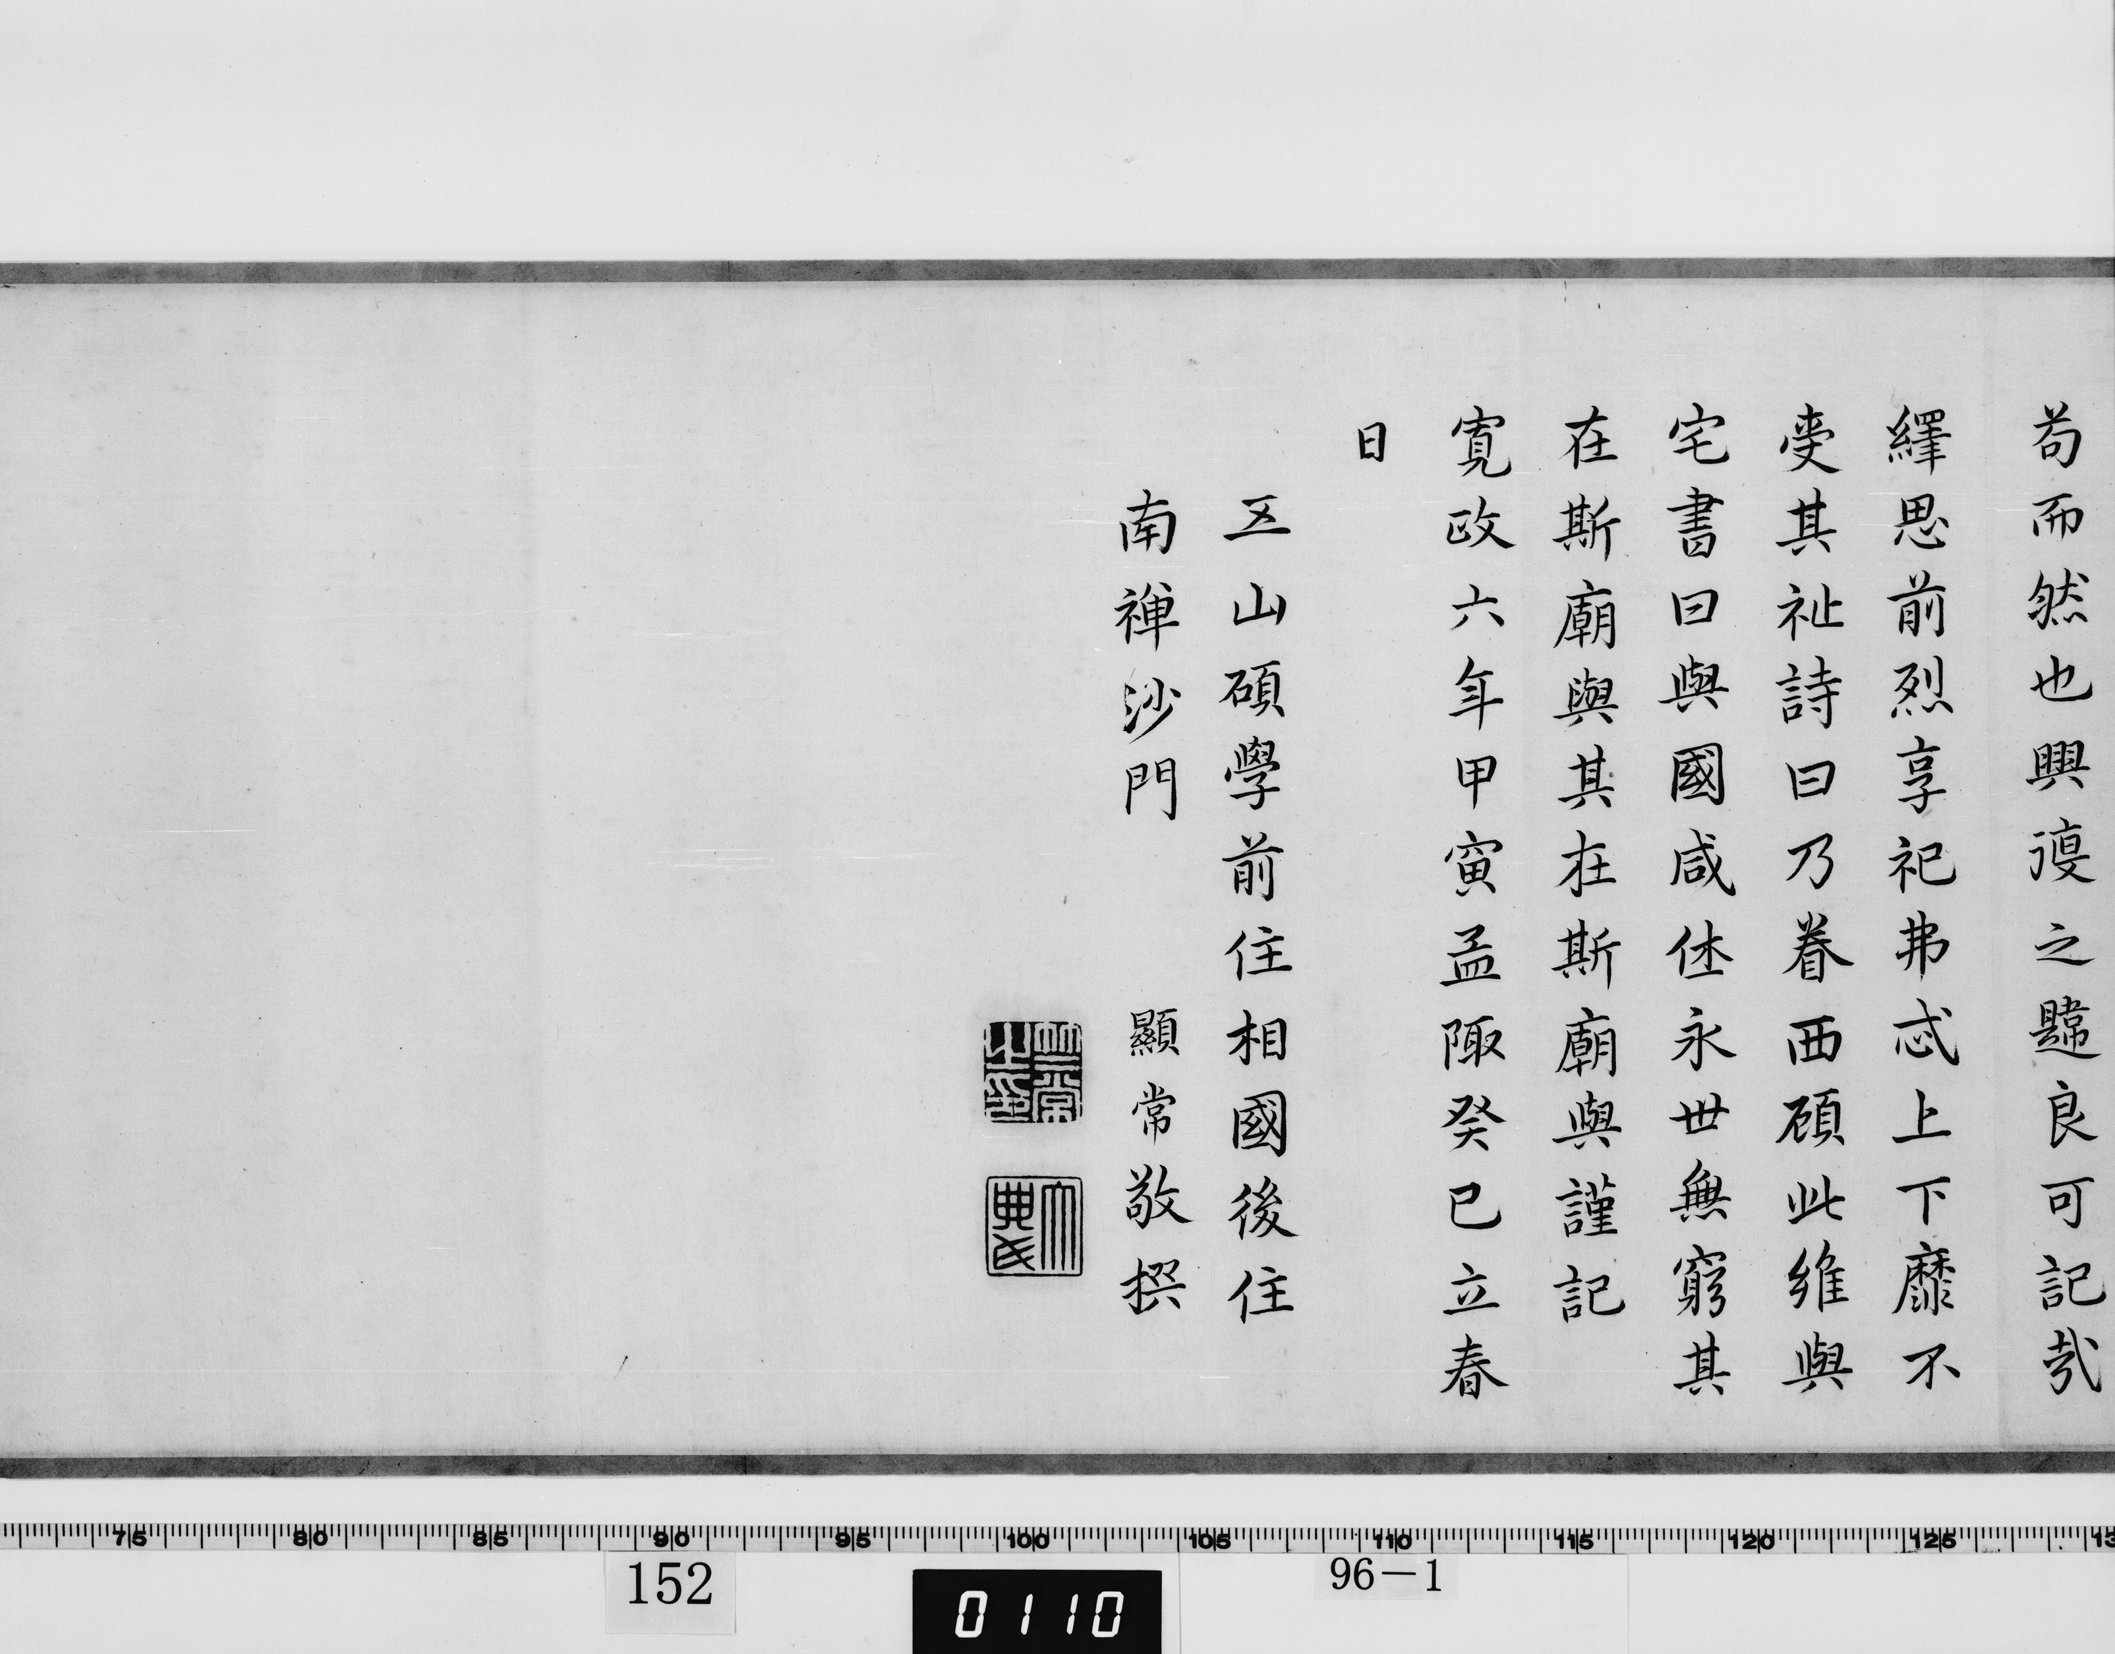 苟而然也興復之韙良可記哉
繹思前烈享祀弗忒上下靡不
受其祉詩曰乃眷西顧此維與
宅書曰與國咸休永世無窮其
在斯廟與其在斯廟與謹記
寬政六年甲寅孟陬癸巳立春
日
五山碩學前住相國後住
南禪沙門　顯常敬撰
竺常之印
大典氏
75 80 85 90 95 100 105 110 115 120 125 13
152
0110
96－1